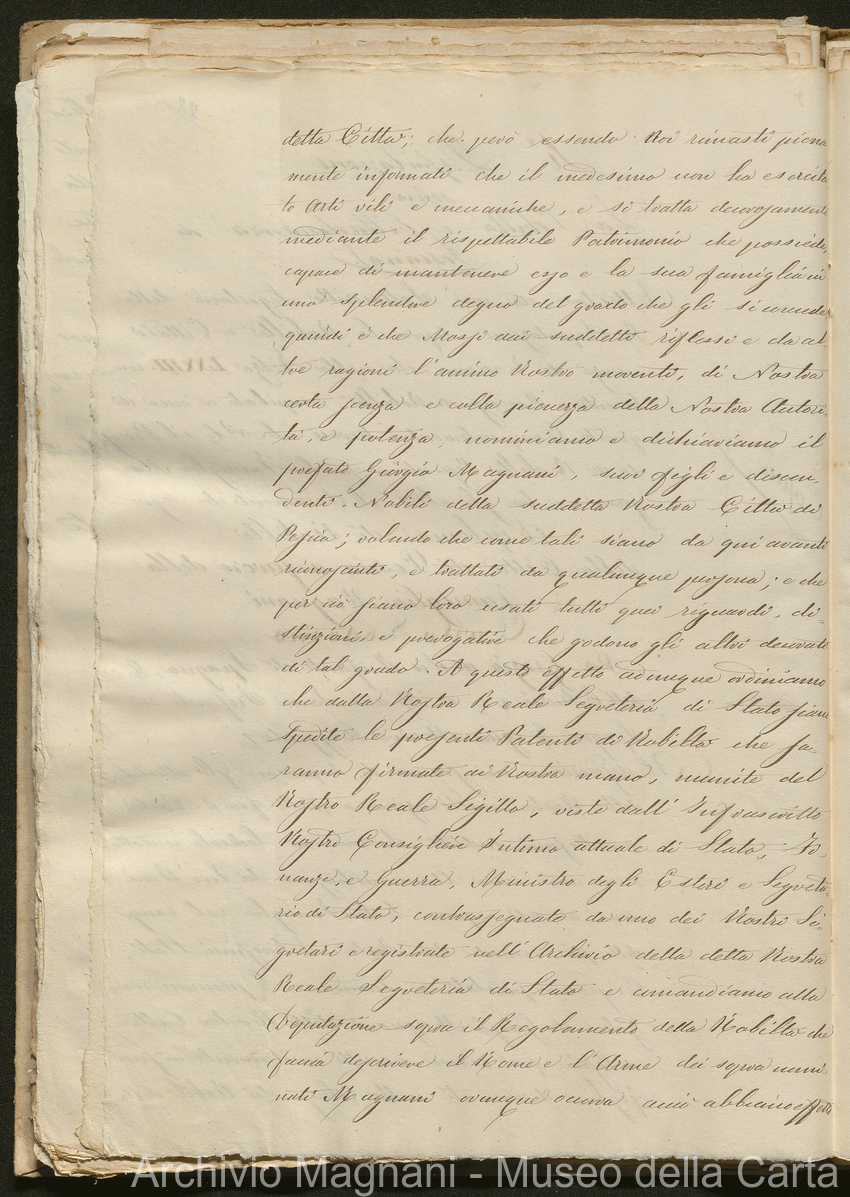 detta Città; che però essendo Noi rimasti piena
mente informati che il medesimo non ha esercita
to Arti vili e meccaniche, e si tratta decorosamente
mediante il rispettabile Patrimonio che possiede,
capace di mantenere esso e la sua famiglia in
uno splendore degno del grado che gli si
quindi è che Mossi dai suddetti riflessi e da al
tre ragioni l'animo Nostro moventi, di Nostra
certa scienza e colla pienezza della Nostra Autori
tà, e potenza, nominiamo e dichiariamo il
prefato Giorgio Magnani, suoi figli e discen,
denti. Nobili della suddetta Nostra Città di
Pescia; volendo che come tali siano da qui avanti
riconosciuti, e trattati da qualunque persona; e che
per ciò siano loro usati tutti quei riguardi, di=
stinzioni e prerogative che godono gli altri decorati
di tal grado. A questo effetto adunque ordiniamo
che dalla Nostra Reale Segreteria di Stato siano
spedite le presenti Patenti di Nobiltà che sa=
ranno firmate di Nostra mano, munite del
Nostro Reale Sigillo, viste dall'Infrascritto
Nostro Consigliere Intimo attuale di Stato, Fi=
nanze, e Guerra, Ministro degli Esteri e Segreta=
rio di Stato, contrassegnate da uno dei Nostri Se=
gretari e registrate nell'Archivio della detta Nostra
Reale Segreteria di Stato e comandiamo alla
Deputazione sopra il Regolamento della Nobiltà che
faccia descrivere il Nome e l'Arme dei sopra nomi
nati Magnani ovunque occorra acciò abbiano effetto
Archivio Magnani - Museo della Carta